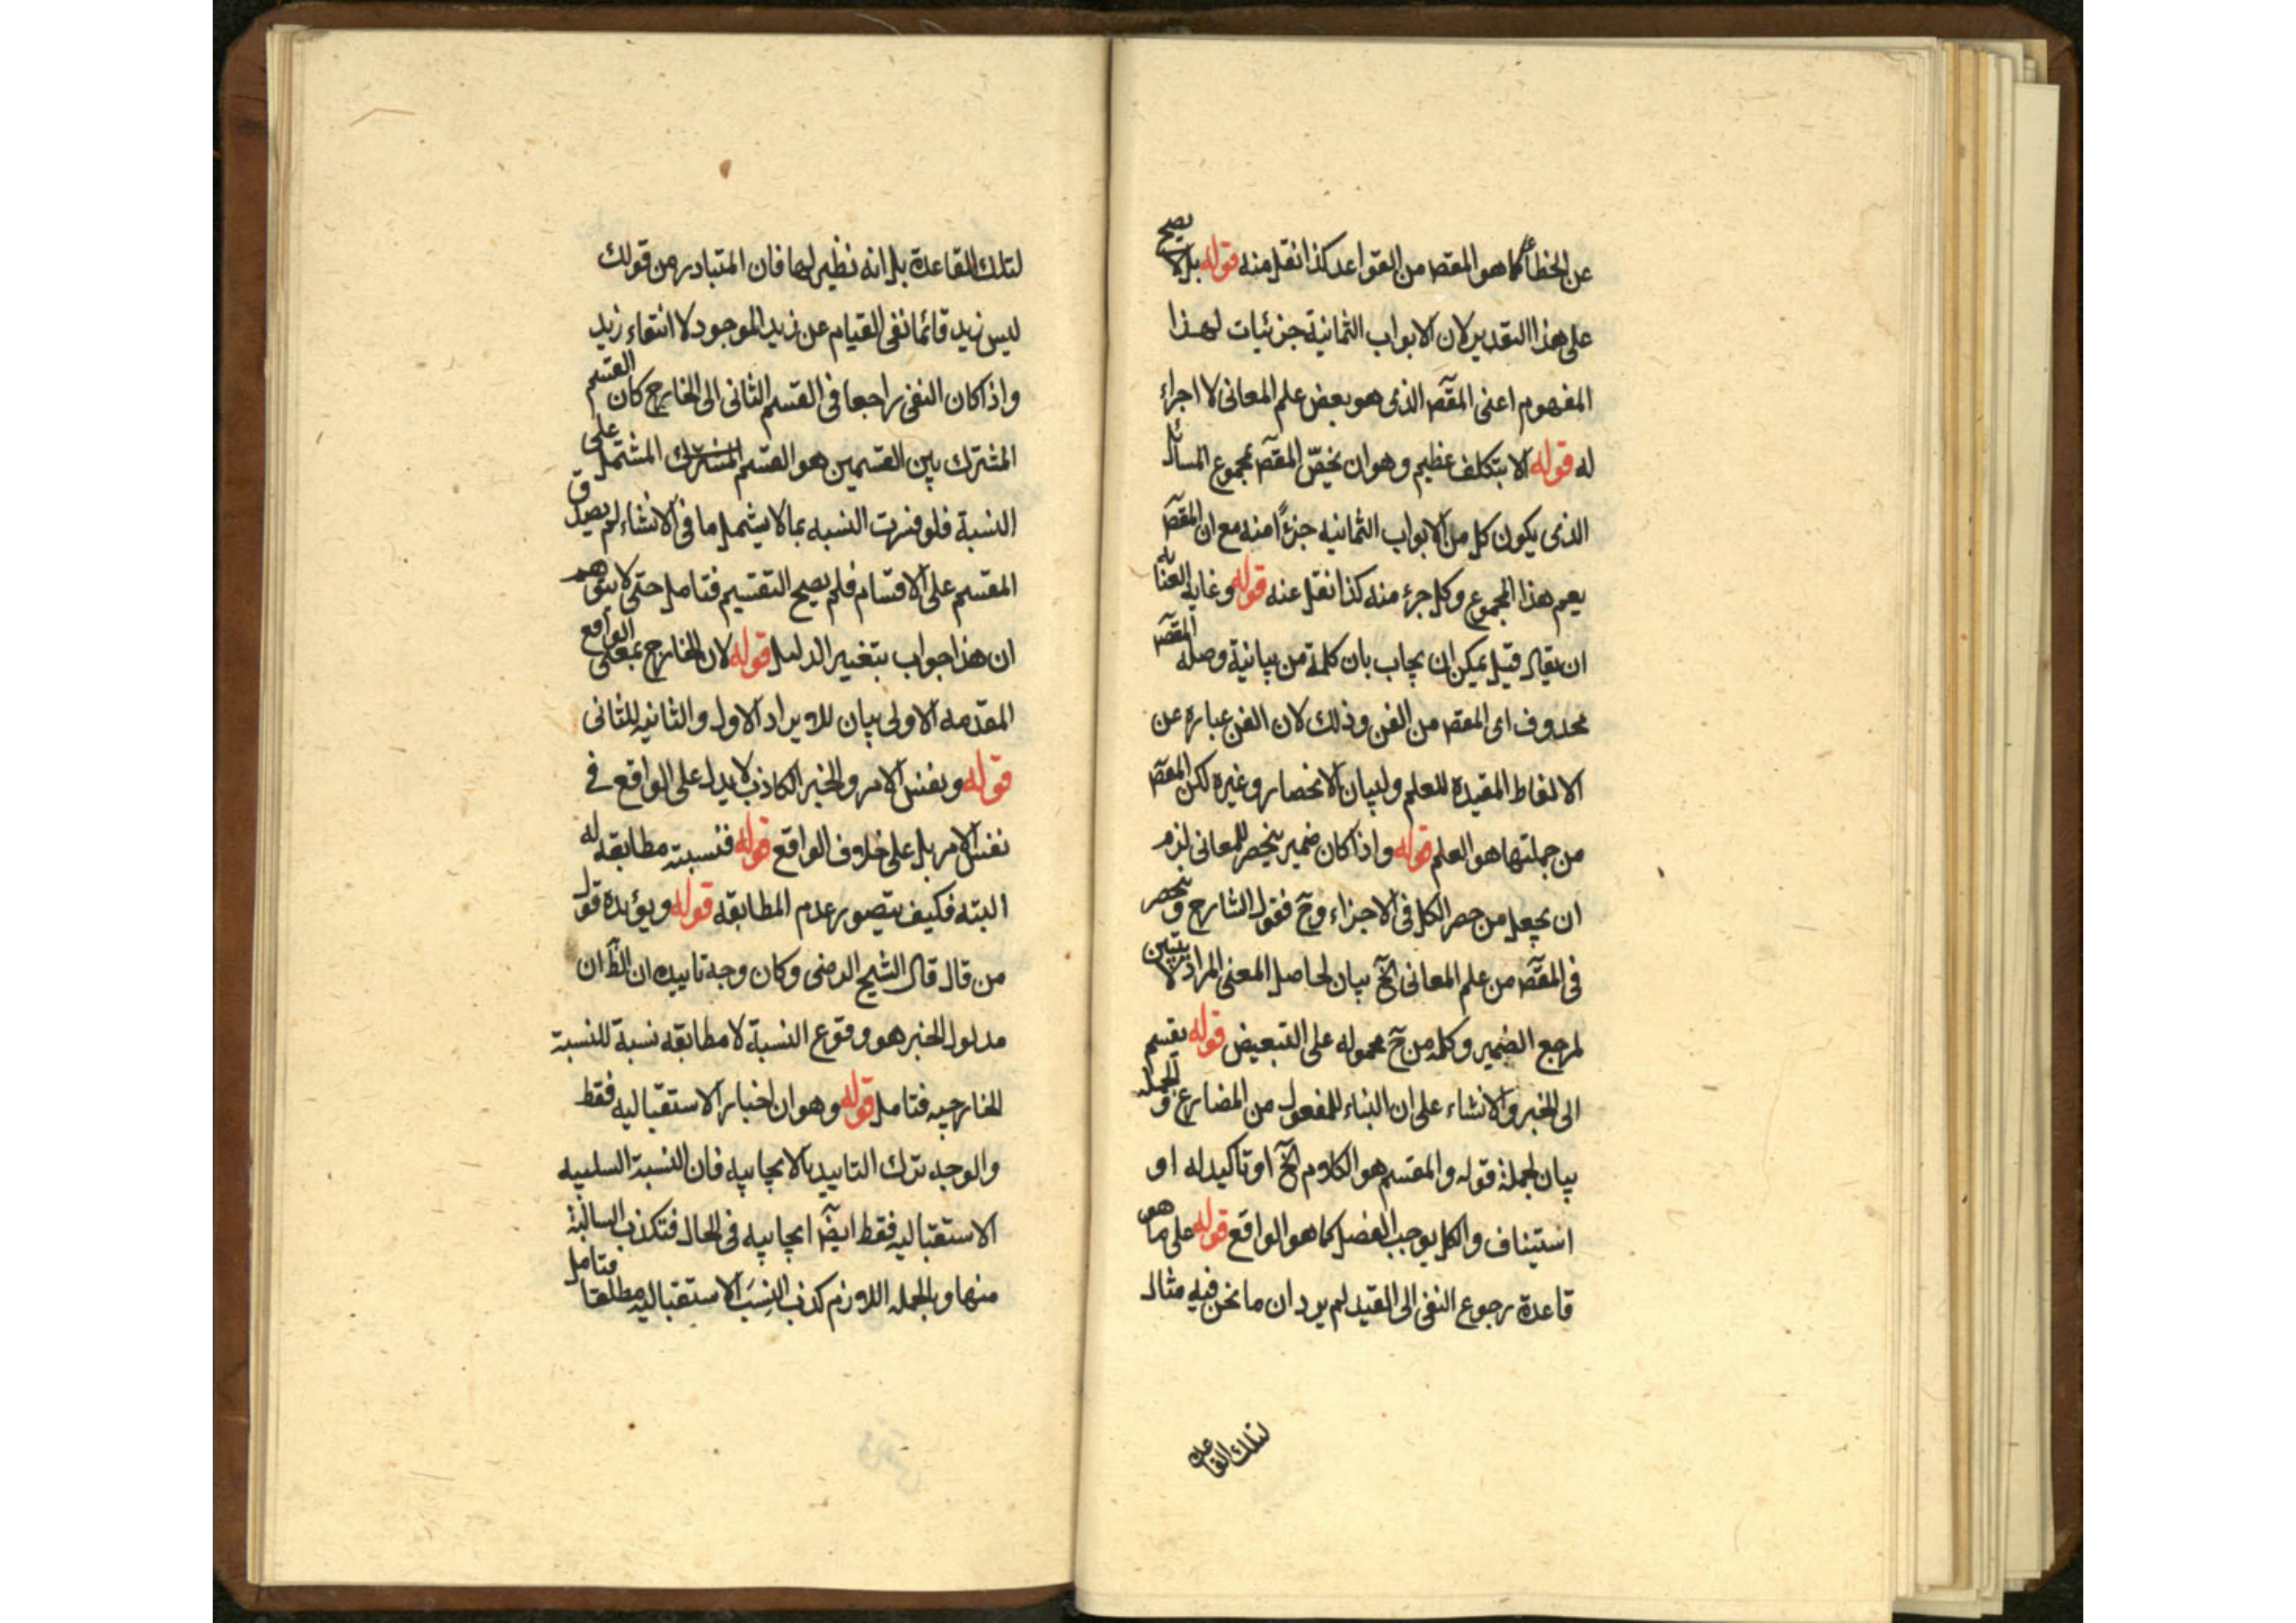 عن الخطأ كما هو المقصـ من القواعد كذا نقل منه قوله بل لا يصح
على هذا التقدير لان الابواب الثمانية جزئيات لهذا
المفهوم اعنى المقصـ الذى هو بعض علم المعانى لا اجزاء
له قوله الا بتكلف عظيم وهو ان يخصّ المقصـ بمجموع المسائل
الذى يكون كل من الابواب الثمانيه جزءًا منه مع ان المقصـ
يعم هذا المجموع وكل جزء منه كذا نقل عنه قوله وغايه العناية
ان يقال قيل يمكن ان يجاب بان كلمة من بيانية وصلة المقصـ
محذوف اى المقصـ من الفن وذلك لان الفن عباره عن
الالفاظ المفيدة للعلم ولبيان الانحصار وغيره لكن المقصـ
من جملتها هو العلم قوله واذا كان ضمير ينحصر للمعانى لزم
ان يجعل من حصر الكل فى الاجزاء وح فقول الشارح وينحصر
فى المقصـ من علم المعانى الخ بيان لحاصل المعنى المراد لا
لمرجع الضمير وكلمه من ح محموله على التبعيض قوله يقسم
الى الخبر والانشاء على ان البناء للمفعول من المضارع و الجملة
بيان لجملة قوله والمقسم هو الكلام الخ او تاكيد له او
استيناف والكل يوجب الفصل كما هو الواقع قوله على ما هو
قاعدة رجوع النفى الى القيد لم يرد ان ما نحن فيه مثال
لتلك القاعدة
لتلك القاعدة بل انه نظير لها فان المتبادر من قولك
ليس زيد قائما نفى القيام عن زيد الموجود لا انتفاء زيد
واذا كان النفى راجعا فى القسم الثانى الى الخارج كان القسم
المشترك بين القسمين هو القسم المشترك المشتمل على
النسبة فلو فسرت النسبه بما لا يشمل ما فى الانشاء لم يصدق
المقسم على الاقسام فلم يصح التقسيم فتامل حتى لا يتوهم
ان هذا جواب بتغيير الدليل قوله لان الخارج بمعنى الواقع
المقدمه الاولى بيان للايراد الاول والثانيه للثانى
قوله ونفس الامر والخبر الكاذب لا يدل على الواقع فى
نفس الامر بل على خلاف الواقع قوله فنسبته مطابقه له
البته فكيف يتصور عدم المطابقه قوله ويؤيده قول
من قال قال الشيخ الرضى وكان وجه تاييده ان الظ ان
مدلول الخبر هو وقوع النسبة لا مطابقه نسبة للنسبة
الخارجيه فتامل قوله وهو ان اخبار الاستقباليه فقط
والوجه ترك التاييد بالايجابيه فان النسبة السلبيه
الاستقباليه فقط ايضـ ايجابيه فى الحال فتكذب السالبة
منها وبالجمله اللازم كذب النسَب الاستقباليه مطلقا فتامل